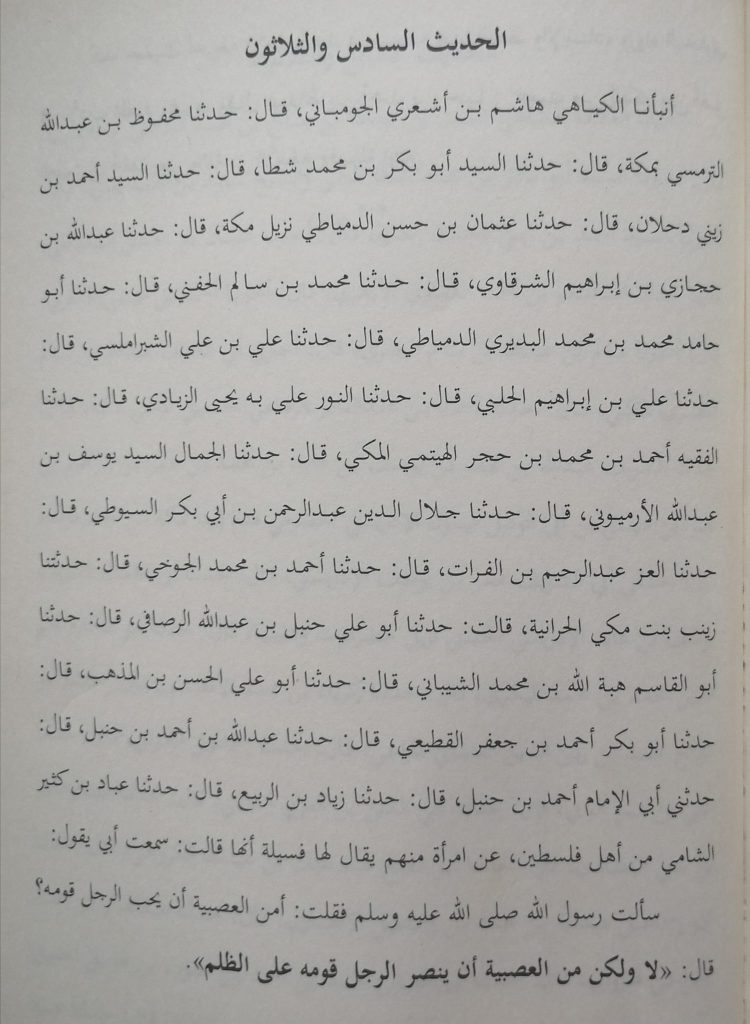 الحديث السادس والثلاثون
أنبأنا الكياهي هاشم بن أشعري الجومباني، قال: حدثنا محفوظ بن عبدالله
الترمسي بمكة، قال: حدثنا السيد أبو بكر بن محمد شطا، قال: حدثنا السيد أحمد بن
زيني دحلان، قال: حدثنا عثمان بن حسن الدمياطي نزيل مكة، قال: حدثنا عبدالله بن
حجازي بن إبراهيم الشرقاوي، قال: حدثنا محمد بن سالم الحفني، قال: حدثنا أبو
حامد محمد بن محمد البديري الدمياطي، قال: حدثنا علي بن علي الشبراملسي، قال:
حدثنا علي بن إبراهيم الحلبي، قال: حدثنا النور علي به يحيى الزيادي، قال: حدثنا
الفقيه أحمد بن محمد بن حجر الهيتمي المكي، قال: حدثنا الجمال السيد يوسف بن
عبدالله الأرميوني، قال: حدثنا جلال الدين عبدالرحمن بن أبي بكر السيوطي، قال:
حدثنا العز عبدالرحيم بن الفرات، قال: حدثنا أحمد بن محمد الجوخي، قال: حدثتنا
زينب بنت مكي الحرانية، قالت: حدثنا أبو علي حنبل بن عبدالله الرصافي، قال: حدثنا
أبو القاسم هبة الله بن محمد الشيباني، قال: حدثنا أبو علي الحسن بن المذهب، قال:
حدثنا أبو بكر أحمد بن جعفر القطيعي، قال: حدثنا عبدالله بن أحمد بن حنبل، قال:
حدثني أبي الإمام أحمد بن حنبل، قال: حدثنا زياد بن الربيع، قال: حدثنا عباد بن كثير
الشامي من أهل فلسطين، عن امرأة منهم يقال لها فسيلة أنها قالت: سمعت أبي يقول:
سألت رسول الله صلى الله عليه وسلم فقلت: أمن العصبية أن يحب الرجل قومه؟
قال: «لا ولكن من العصبية أن ينصر الرجل قومه على الظلم».